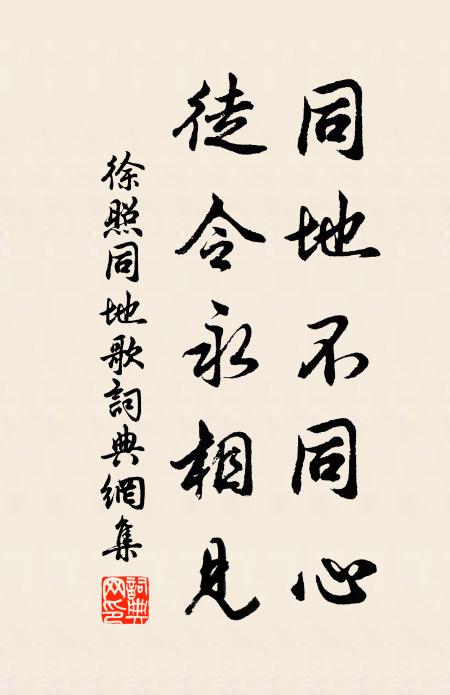 同地不同心
徒令永相見
徐照同地歌詞典網集
詞典網印